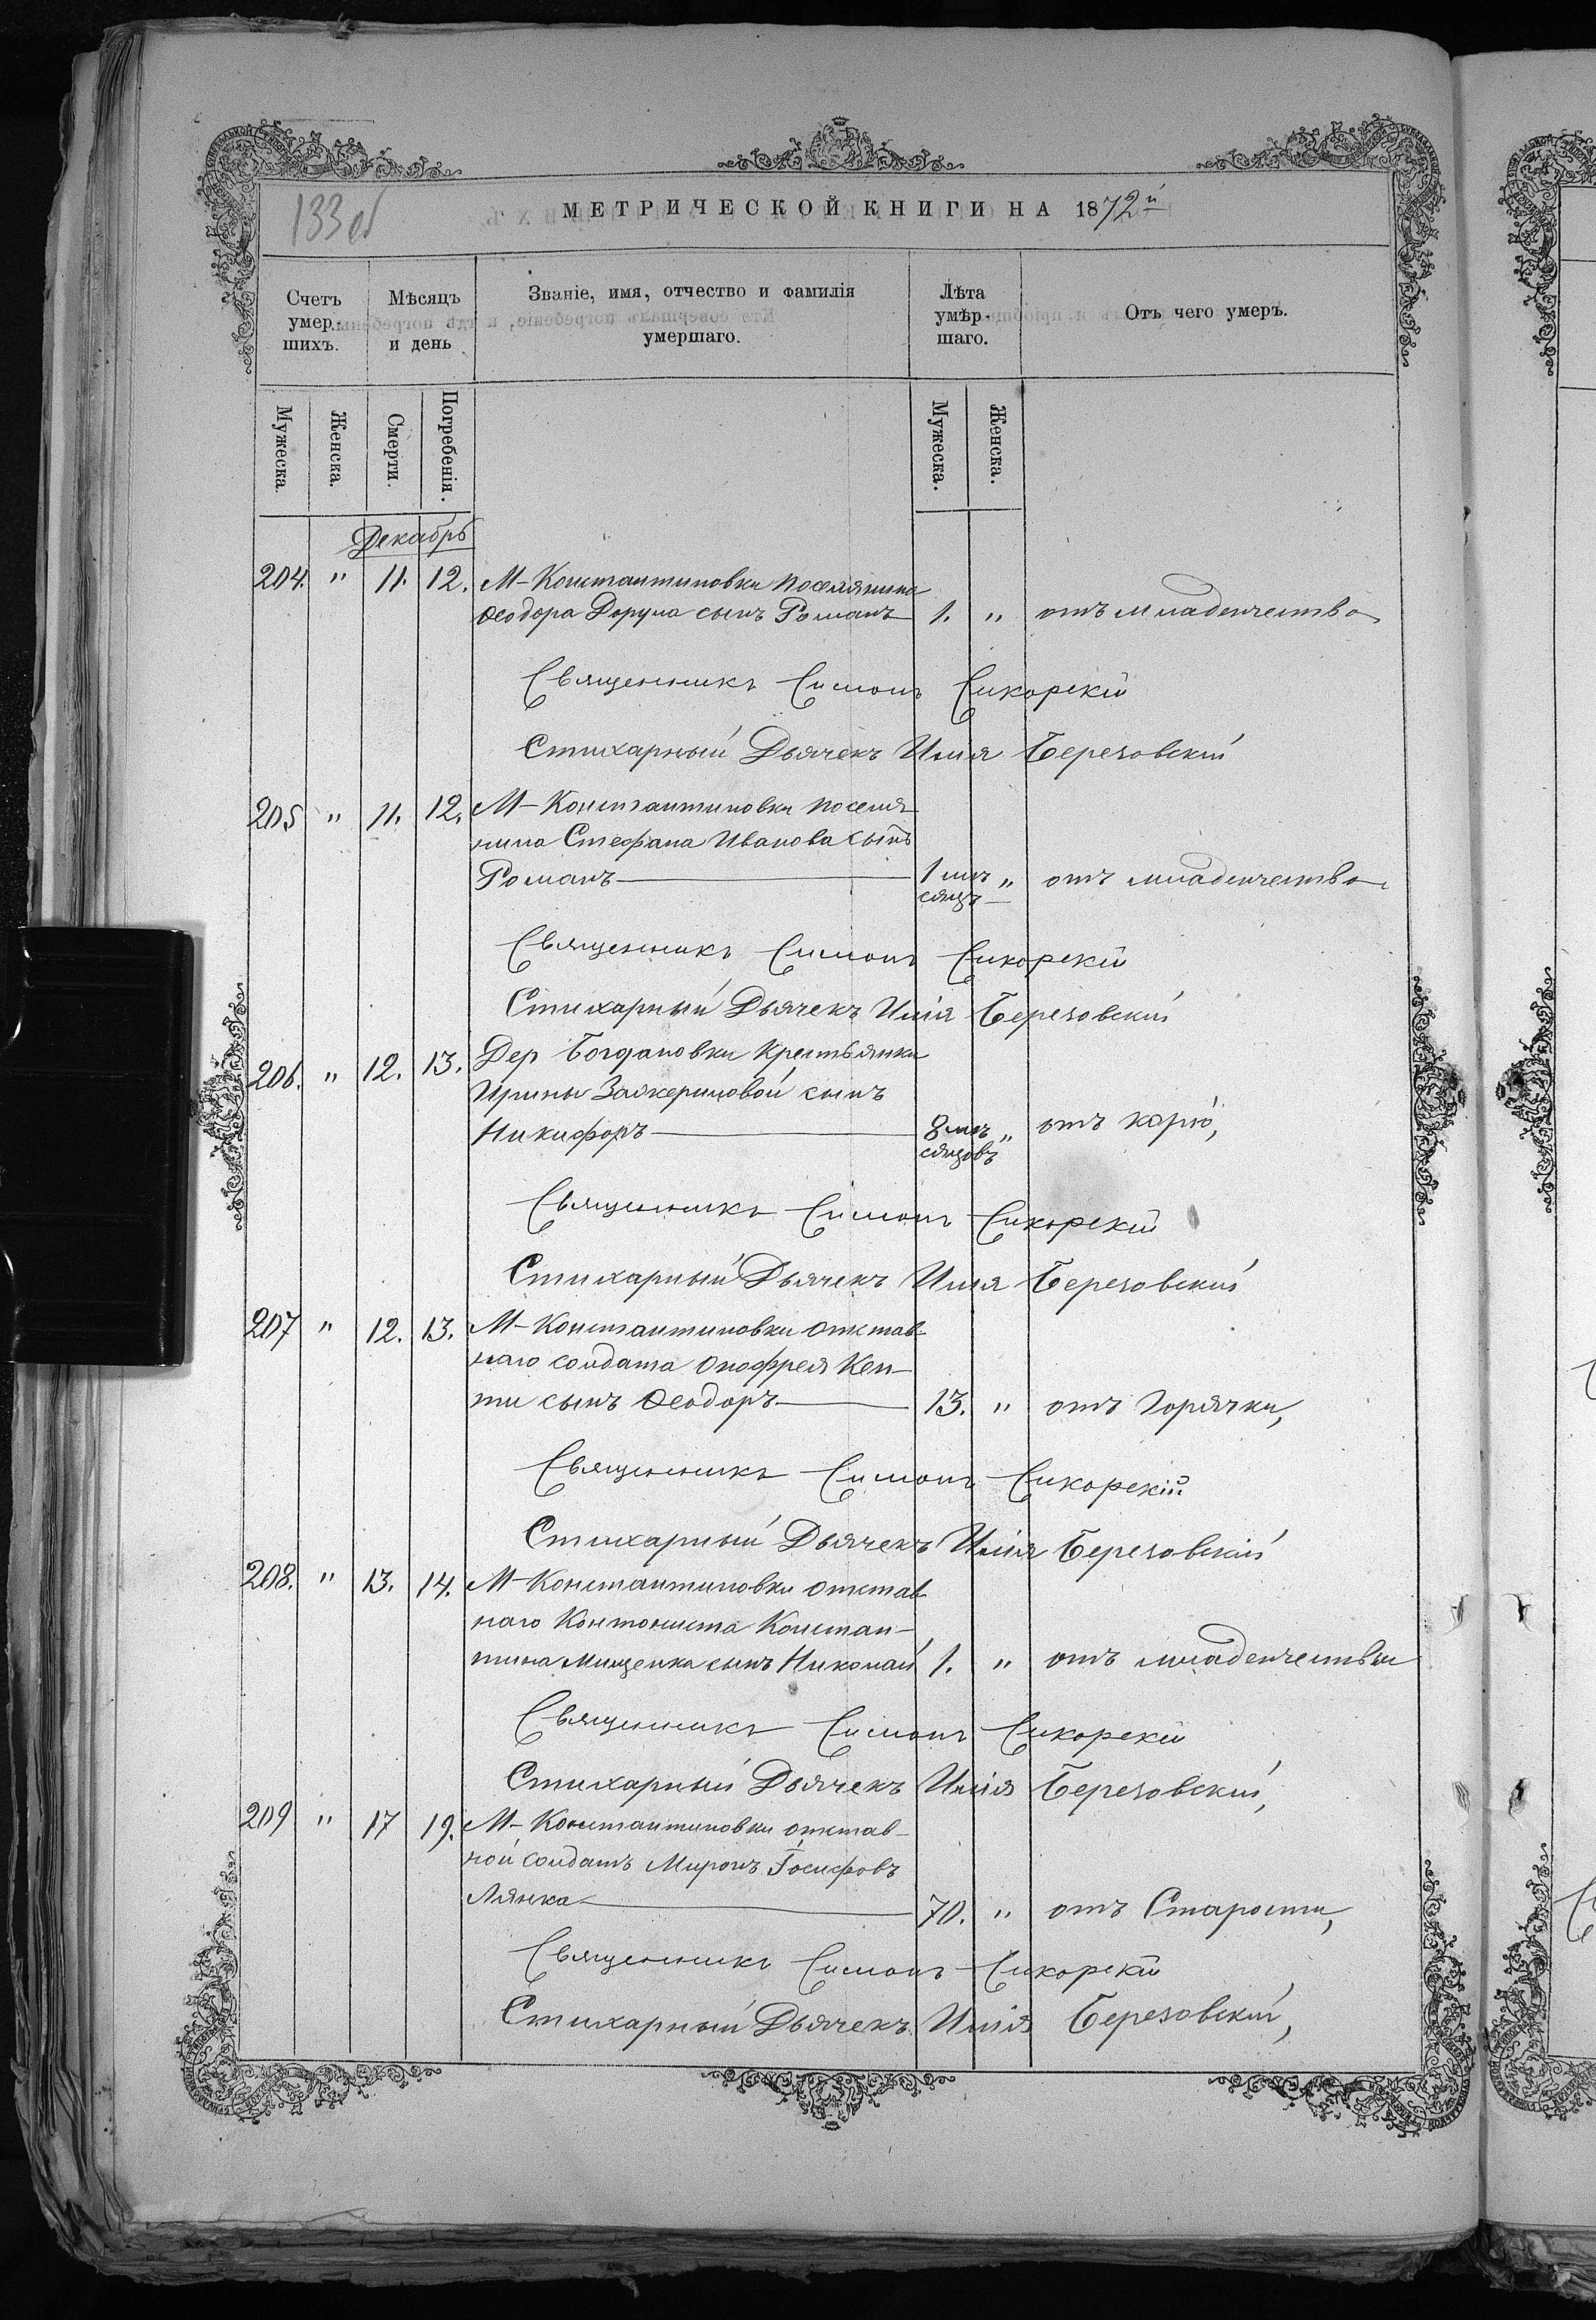 133 об
МЕТРИЧЕСКОЙ КНИГИ НА 1872й
Счетъ умер-шихъ.
Мѣсяцъ и день
Званіе, имя, отчество и фамилія умершаго.
Лѣта умѣр-шаго.
Отъ чего умеръ.
Мужеска.
Женска.
Смерти.
Погребенія.
Мужеска.
Женска.
Декабрь
204. " 11. 12. М-Константиновки поселянина
Ѳеодора Доруна сынъ Романъ 1. " отъ младенчества
Священникъ Симонъ Сикорскій
Стихарный Дьячекъ Илія Березовскій
205 " 11. 12. М-Константиновки поселя-
нина Стефана Иванова сынъ
Романъ 1 мѣ- " отъ младенчества
сяцъ
Священникъ Симонъ Сикорскій
Стихарный Дьячекъ Илія Березовскій
206. " 12. 13. Дер Богдановки Крестьянки
Ирины сынъ
Никифоръ 8 мѣ- " отъ корю,
сяцовъ
Священникъ Симонъ Сикорскій
Стихарный Дьячекъ Илія Березовскій
207 " 12. 13. М-Константиновки отстав-
наго солдата Онофрея Кеп-
ти сынъ Ѳеодоръ 13. " отъ Горячки,
Священникъ Симонъ Сикорскій
Стихарный Дьячекъ Илія Березовскій
208. " 13. 14. М-Константиновки отстав-
наго Контониста Констан-
тина Мищенка сынъ Николай 1. " отъ младенчества
Священникъ Симонъ Сикорскій
Стихарный Дьячекъ Илія Березовскій,
209 " 17 19. М-Константиновки отстав-
ной солдатъ Миронъ Іосифовъ
Лянка 70. " отъ Старости,
Священникъ Симонъ Сикорскій
Стихарный Дьячекъ Илія Березовскій,